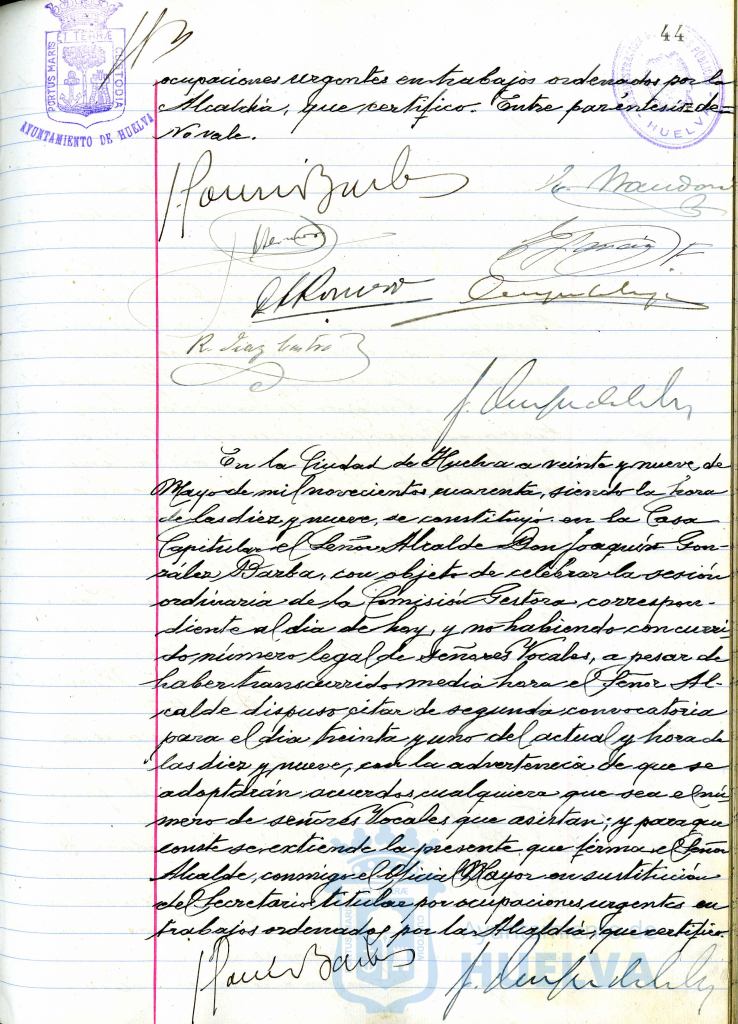 44
PORTUS MARIS ET TERRÆ CUSTODIA
AYUNTAMIENTO DE HUELVA
HUELVA
ocupaciones urgentes en trabajos ordenados por la
Alcaldía, que certifico. Entre paréntesis=de=
No vale.
R. Díaz Castro
En la Ciudad de Huelva a veinte y nueve de
Mayo de mil novecientos cuarenta, siendo la hora
de las diez y nueve, se constituyó en la Casa
Capitular el Señor Alcalde Don Joaquín Gon-
zález Barba, con objeto de celebrar la sesión
ordinaria de la Comisión Gestora correspon-
diente al día de hoy, y no habiendo concurri-
do número legal de señores Vocales, a pesar de
haber transcurrido media hora el Señor Al-
calde dispuso citar de segunda convocatoria
para el día treinta y uno del actual y hora de
las diez y nueve, con la advertencia de que se
adoptarán acuerdos cualquiera que sea el nú-
mero de señores Vocales que asistan; y para que
conste se extiende la presente que firma el Señor
Alcalde, conmigo el Oficial Mayor en sustitución
del Secretario titular por ocupaciones urgentes en
trabajos ordenados por la Alcaldía, que certifico.
Ayuntamiento de
HUELVA